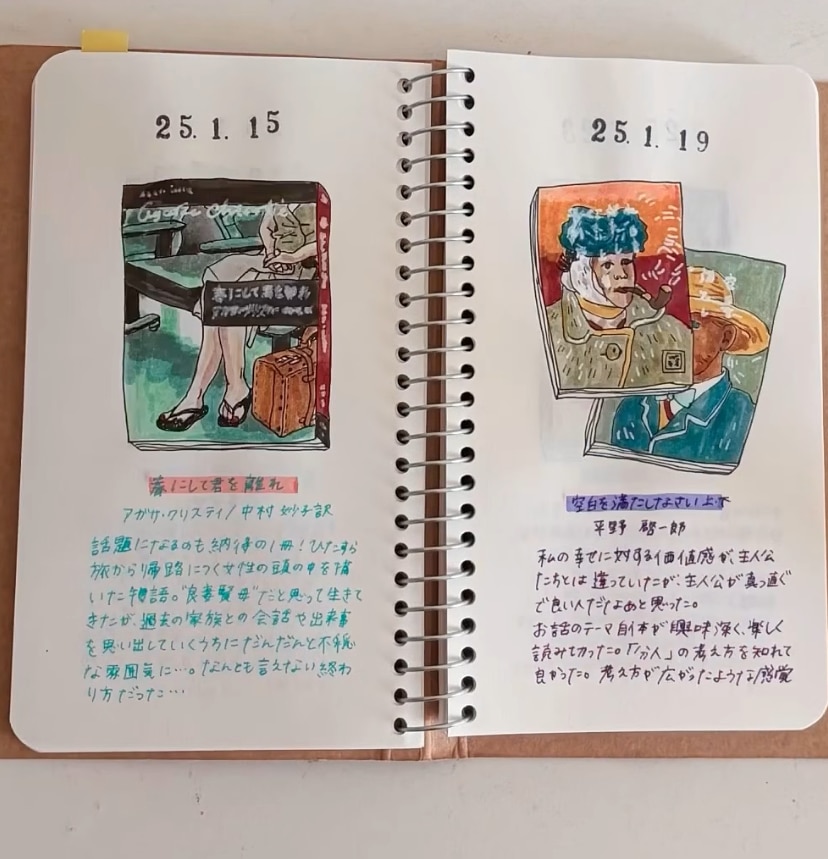 25. 1. 15
Agatha Christie
春にして君を離れ
春にして君を離れ
アガサ・クリスティ/中村妙子訳
話題になるのも納得の1冊!ひたすら
旅から帰路につく女性の頭の中を描
いた物語。"良妻賢母"だと思って生きて
きたが、過去の家族との会話や出来事
を思い出していくうちにだんだんと不穏
な雰囲気に…。なんとも言えない終わ
り方だった…
25. 1. 19
空白を満たしなさい 上下
平野 啓一郎
私の幸せに対する価値感が、主人公
たちとは違っていたが、主人公が真っ直ぐ
で良い人だなぁと思った。
お話のテーマ自体が興味深く、楽しく
読み切った。「分人」の考え方を知れて
良かった。考え方が広がったような感覚